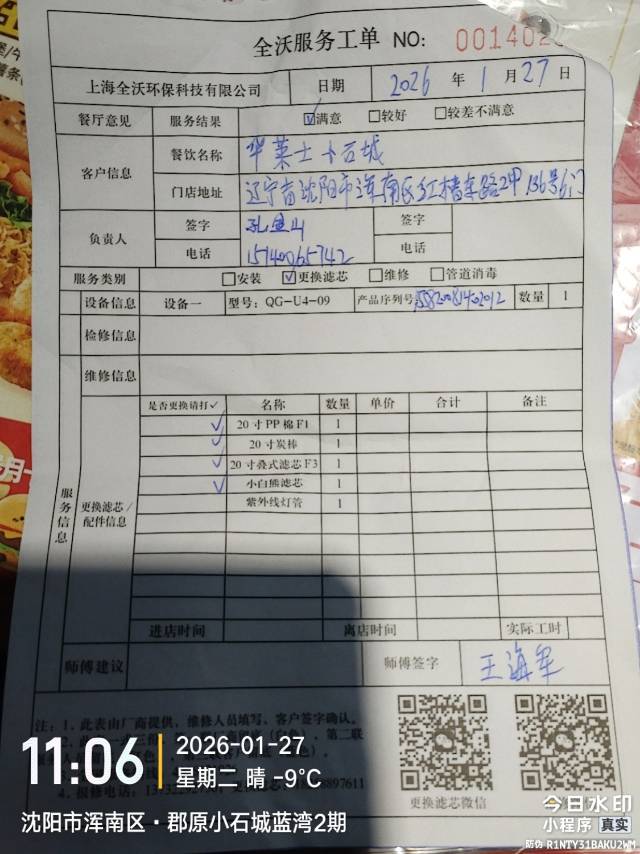 全沃服务工单 NO: 001402
上海全沃环保科技有限公司 日期 2026 年 1 月 27 日
餐厅意见 服务结果 ☑满意 ☐较好 ☐较差不满意
客户信息 餐饮名称 华莱士小石城
门店地址 辽宁省沈阳市浑南区红椿东路2甲 136号6门
负责人 签字 孔金山 签字
电话 15140065742 电话
服务类别 ☐安装 ☑更换滤芯 ☐维修 ☐管道消毒
设备信息 设备一 型号: QG-U4-09 产品序列号 数量 1
检修信息
维修信息
服务信息 更换滤芯/配件信息
是否更换请打✓ 名称 数量 单价 合计 备注
✓ 20寸PP棉F1 1
✓ 20寸炭棒 1
✓ 20寸叠式滤芯F3 1
✓ 小白熊滤芯 1
紫外线灯管 1
进店时间 离店时间 实际工时
师傅建议 师傅签字 王海军
注: 1、此表由厂商提供，维修人员填写，客户签字确认。
更换滤芯微信
11:06 2026-01-27
星期二 晴 -9°C
沈阳市浑南区·郡原小石城蓝湾2期
今日水印
小程序 真实
防伪 R1NTY31BAKU2WM